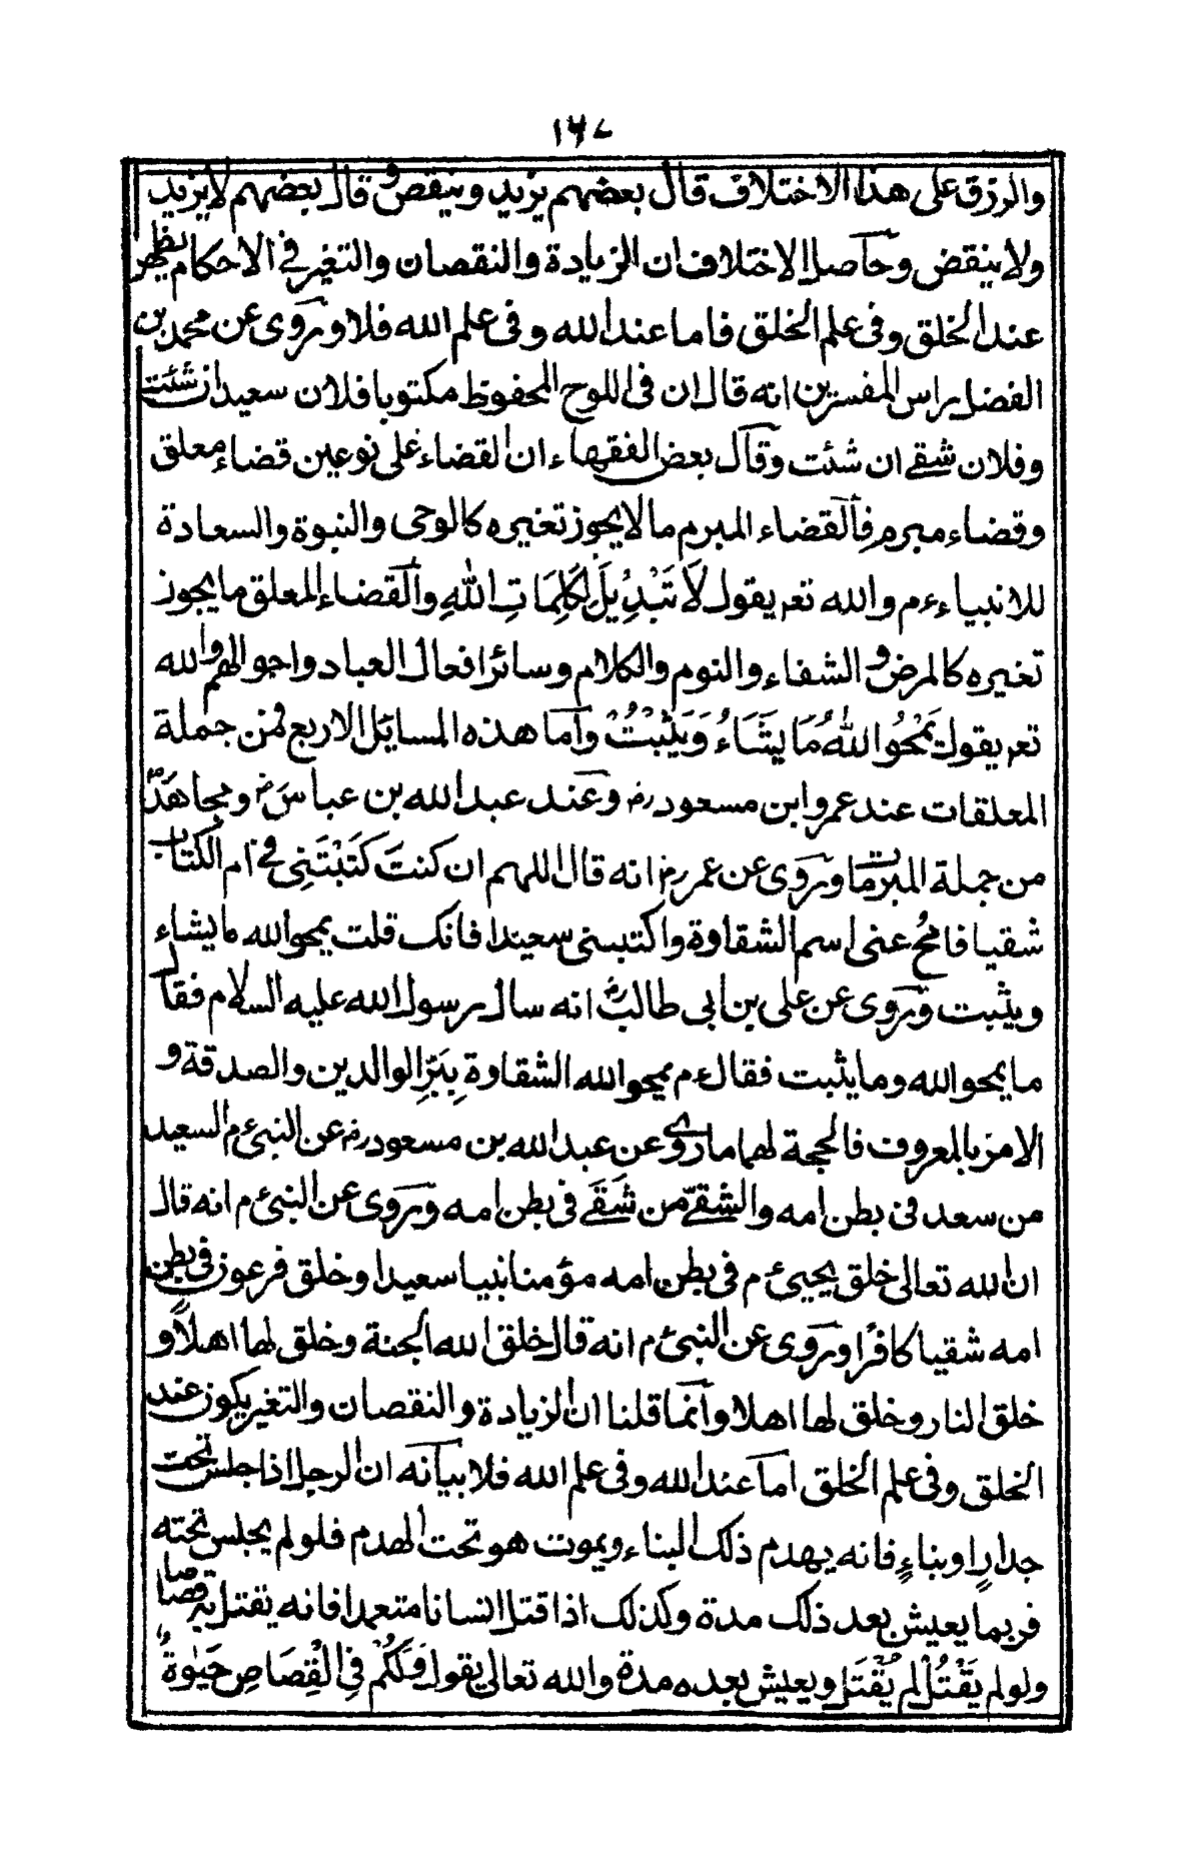 ١٦٧
والرزق على هذا الاختلاف قال بعضهم يزيد وينقص وقال بعضهم لا يزيد
ولا ينقص وحاصل الاختلاف ان الزيادة والنقصان والتغير فى الاحكام يظهر
عند الخلق وفى علم الخلق فاما عند الله وفى علم الله فلا وروى عن محمد بن
الفضل راس المفسرين انه قال ان فى اللوح المحفوظ مكتوبا فلان سعيد ان شئت
وفلان شقى ان شئت وقال بعض الفقهاء ان القضاء على نوعين قضاء معلق
وقضاء مبرم فالقضاء المبرم ما لا يجوز تغيره كالوحى والنبوة والسعادة
للانبياء ءم والله تعر يقول لَا تَبْدِيلَ لِكَلِمَاتِ اللّٰهِ والقضاء المعلق ما يجوز
تغيره كالمرض والشفاء والنوم والكلام وسائر افعال العباد واحوالهم والله
تعر يقول يَمْحُوا اللّٰهُ مَا يَشَاءُ وَيُثْبِتُ واما هذه المسائل الاربع فمن جملة
المعلقات عند عمر وابن مسعود رض وعند عبد الله بن عباس رض ومجاهد رض
من جملة المبرمات وروى عن عمر رض انه قال اللهم ان كنت كَتَبْتَنِى فى ام الكتاب
شقيا فامحُ عنى اسم الشقاوة واكتبنى سعيدا فانك قلت يمحوا الله ما يشاء
ويثبت وروى عن على بن ابى طالب رض انه سال رسول الله عليه السلام فقال
ما يمحوا الله وما يثبت فقال ءم يمحوا الله الشقاوة بِبَرِّ الوالدين والصدقة و
الامر بالمعروف فالحجة لهما ما روى عن عبد الله بن مسعود رض عن النبى ءم السعيد
من سعد فى بطن امه والشقىّ من شَقَى فى بطن امه وروى عن النبى ءم انه قال
ان الله تعالى خلق يحيى ءم فى بطن امه مؤمنا نبيا سعيدا وخلق فرعون فى بطن
امه شقيا كافرًا وروى عن النبى ءم انه قال خلق الله الجنة وخلق لها اهلاً و
خلق النار وخلق لها اهلا وانما قلنا ان الزيادة والنقصان والتغير يكون عند
الخلق وفى علم الخلق اما عند الله وفى علم الله فلا بيانه ان الرجل اذا جلس تحت
جدارٍ او بناءٍ فانه يهدم ذلك البناء ويموت هو تحت الهدم فلو لم يجلس تحته
فربما يعيش بعد ذلك مدة وكذلك اذا قتل انسانا متعمدا فانه يقتل به قصاصا
ولو لم يَقْتُلْ لم يُقْتَل ويعيش بعده مدة والله تعالى يقول وَلَكُمْ فِى الْقِصَاصِ حَيٰوةٌ